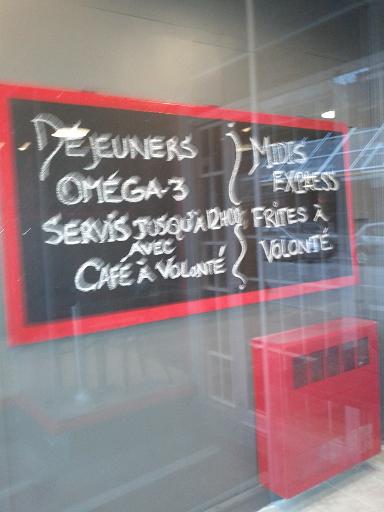 DÉJEUNERS
OMÉGA-3
SERVIS JUSQU'À 12H00
AVEC
CAFÉ À VOLONTÉ
MIDIS
EXPRESS
FRITES À
VOLONTÉ